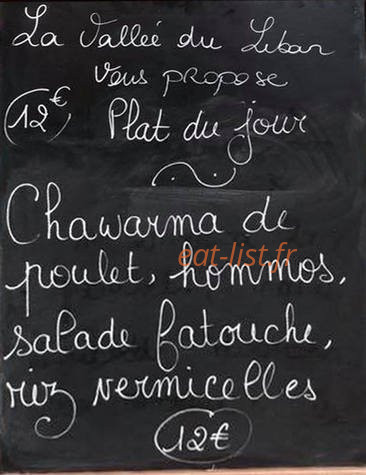 La Vallée du Liban
vous propose
12€ Plat du jour
Chawarma de
eat-list.fr
poulet, hommos,
salade fatouche,
riz vermicelles
12€